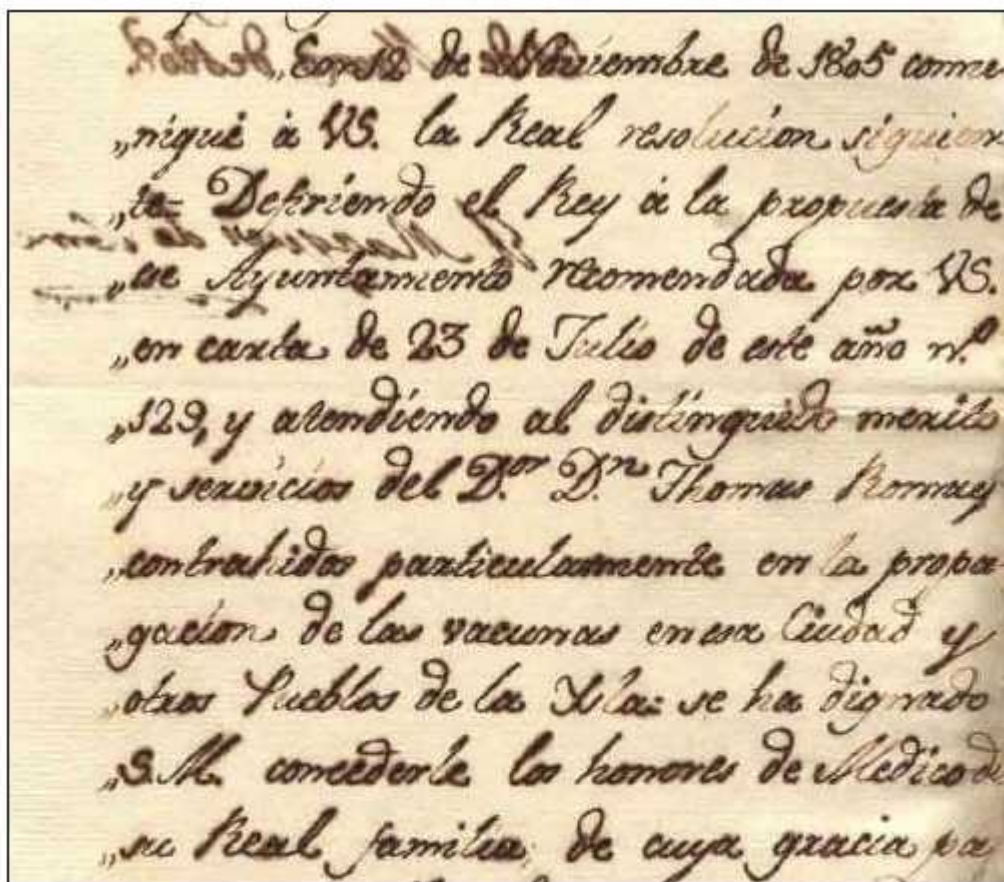 „En 12 de Noviembre de 1805 comu
„niqué à VS. la Real resolucion siguien
„te= Defiriendo el Rey à la propuesta de
„ese Ayuntamiento recomendada por VS.
„en carta de 23 de Julio de este año n.º
„129, y atendiendo al distinguido merito
„y servicios del D.or D.n Thomas Romay
„contrahidos particularmente en la propa
„gacion de las vacunas en esa Ciudad y
„otros Pueblos de la Ysla: se ha dignado
„S.M. concederle los honores de Medico de
„su Real familia; de cuya gracia pa